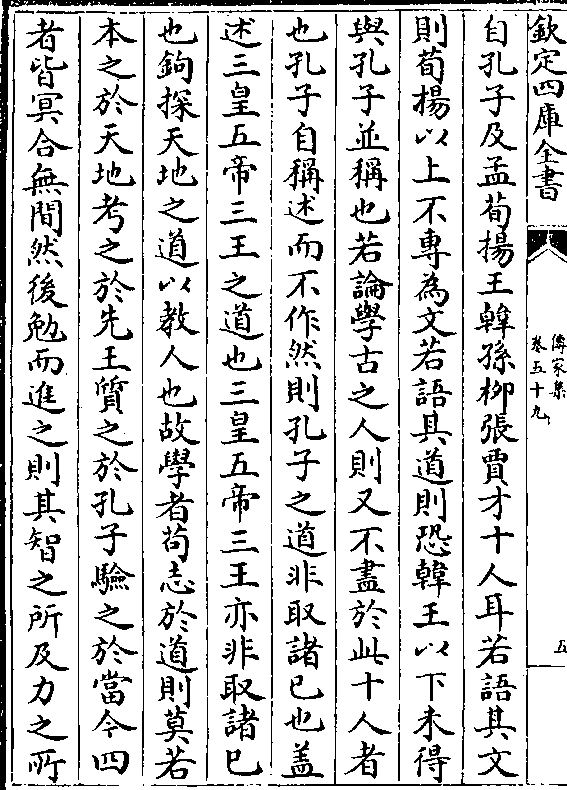 欽定四庫全書
傳家集
卷五十九
五
自孔子及孟荀揚王韓孫柳張賈才十人耳若語其文
則荀揚以上不專為文若語其道則恐韓王以下未得
與孔子並稱也若論學古之人則又不盡於此十人者
也孔子自稱述而不作然則孔子之道非取諸已也盖
述三皇五帝三王之道也三皇五帝三王亦非取諸已
也鉤探天地之道以教人也故學者茍志於道則莫若
本之於天地考之於先王質之於孔子驗之於當今四
者皆冥合無間然後勉而進之則其智之所及力之所